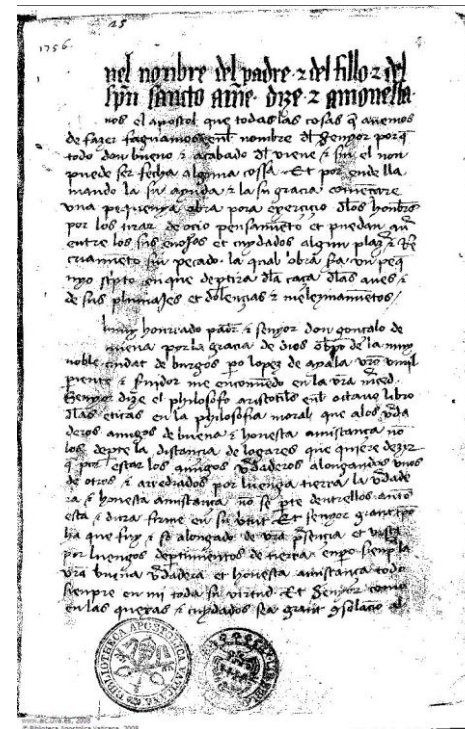 25
1756.
nel nonbre del padre ⁊ del fillo ⁊ del
spũ sancto amẽ. dize ⁊ amonesta
nos el apostol que todas las cosas q̃ auemos
de fazer fagamos enl nombre dl senyor porq̃
todo don bueno ⁊ acabado dl viene ⁊ sin el non
puede ser fecha alguna cossa. Et por ende lla
mando la su ayuda ⁊ la su gracia començare
vna pequenya obra pora exerçiçio dlos honbrs
por los tirar de ocio pensamiẽto et puedan
entre los sus enojos et cuydados algun plazr ⁊
criamiẽto sin pecado. la qual obra sia vn peq̃
nyo en que deptira dla caça dlas aues ⁊
de sus plumajes et dolençias ⁊ meleznamiẽtos /
muy honrrado padr ⁊ senyor don gonçalo de
mena por la graçia de dios obpo de la muy
noble çiudat de burgos pero lopez de ayala vrõ vmil
piente ⁊ me encomiẽdo en la vrã mrd.
Senyor dize el philosofo aristotiles enl octauo libro
dlas eticas en la philosofia moral que alos vda
deros amigos de buena ⁊ honesta amistança nõ
los depte la distançia de logares que quiere dezir
q̃ por estar los amigos vdaderos alongados vnos
de otros ⁊ arredrados por luenga tierra la vdade
ra ⁊ honesta amistança no se pte dentrellos antes
esta ⁊ dura firme en su vtut Et senyor grant tpo
ha que fuy ⁊ so alongado de vrã psençia et vista
por luengos deptimientos de tierra. enpo sienp la
vrã buena vdadera et honesta amistança touo
sienpre en mi toda su virtud Et Senyor como
en las quexas ⁊ cuydados sea grant 9solaçiõ al
BIBLIOTECA APOSTOLICA VATICANA
www.aic.uva.es, 2008
© Biblioteca Apostolica Vaticana, 2008